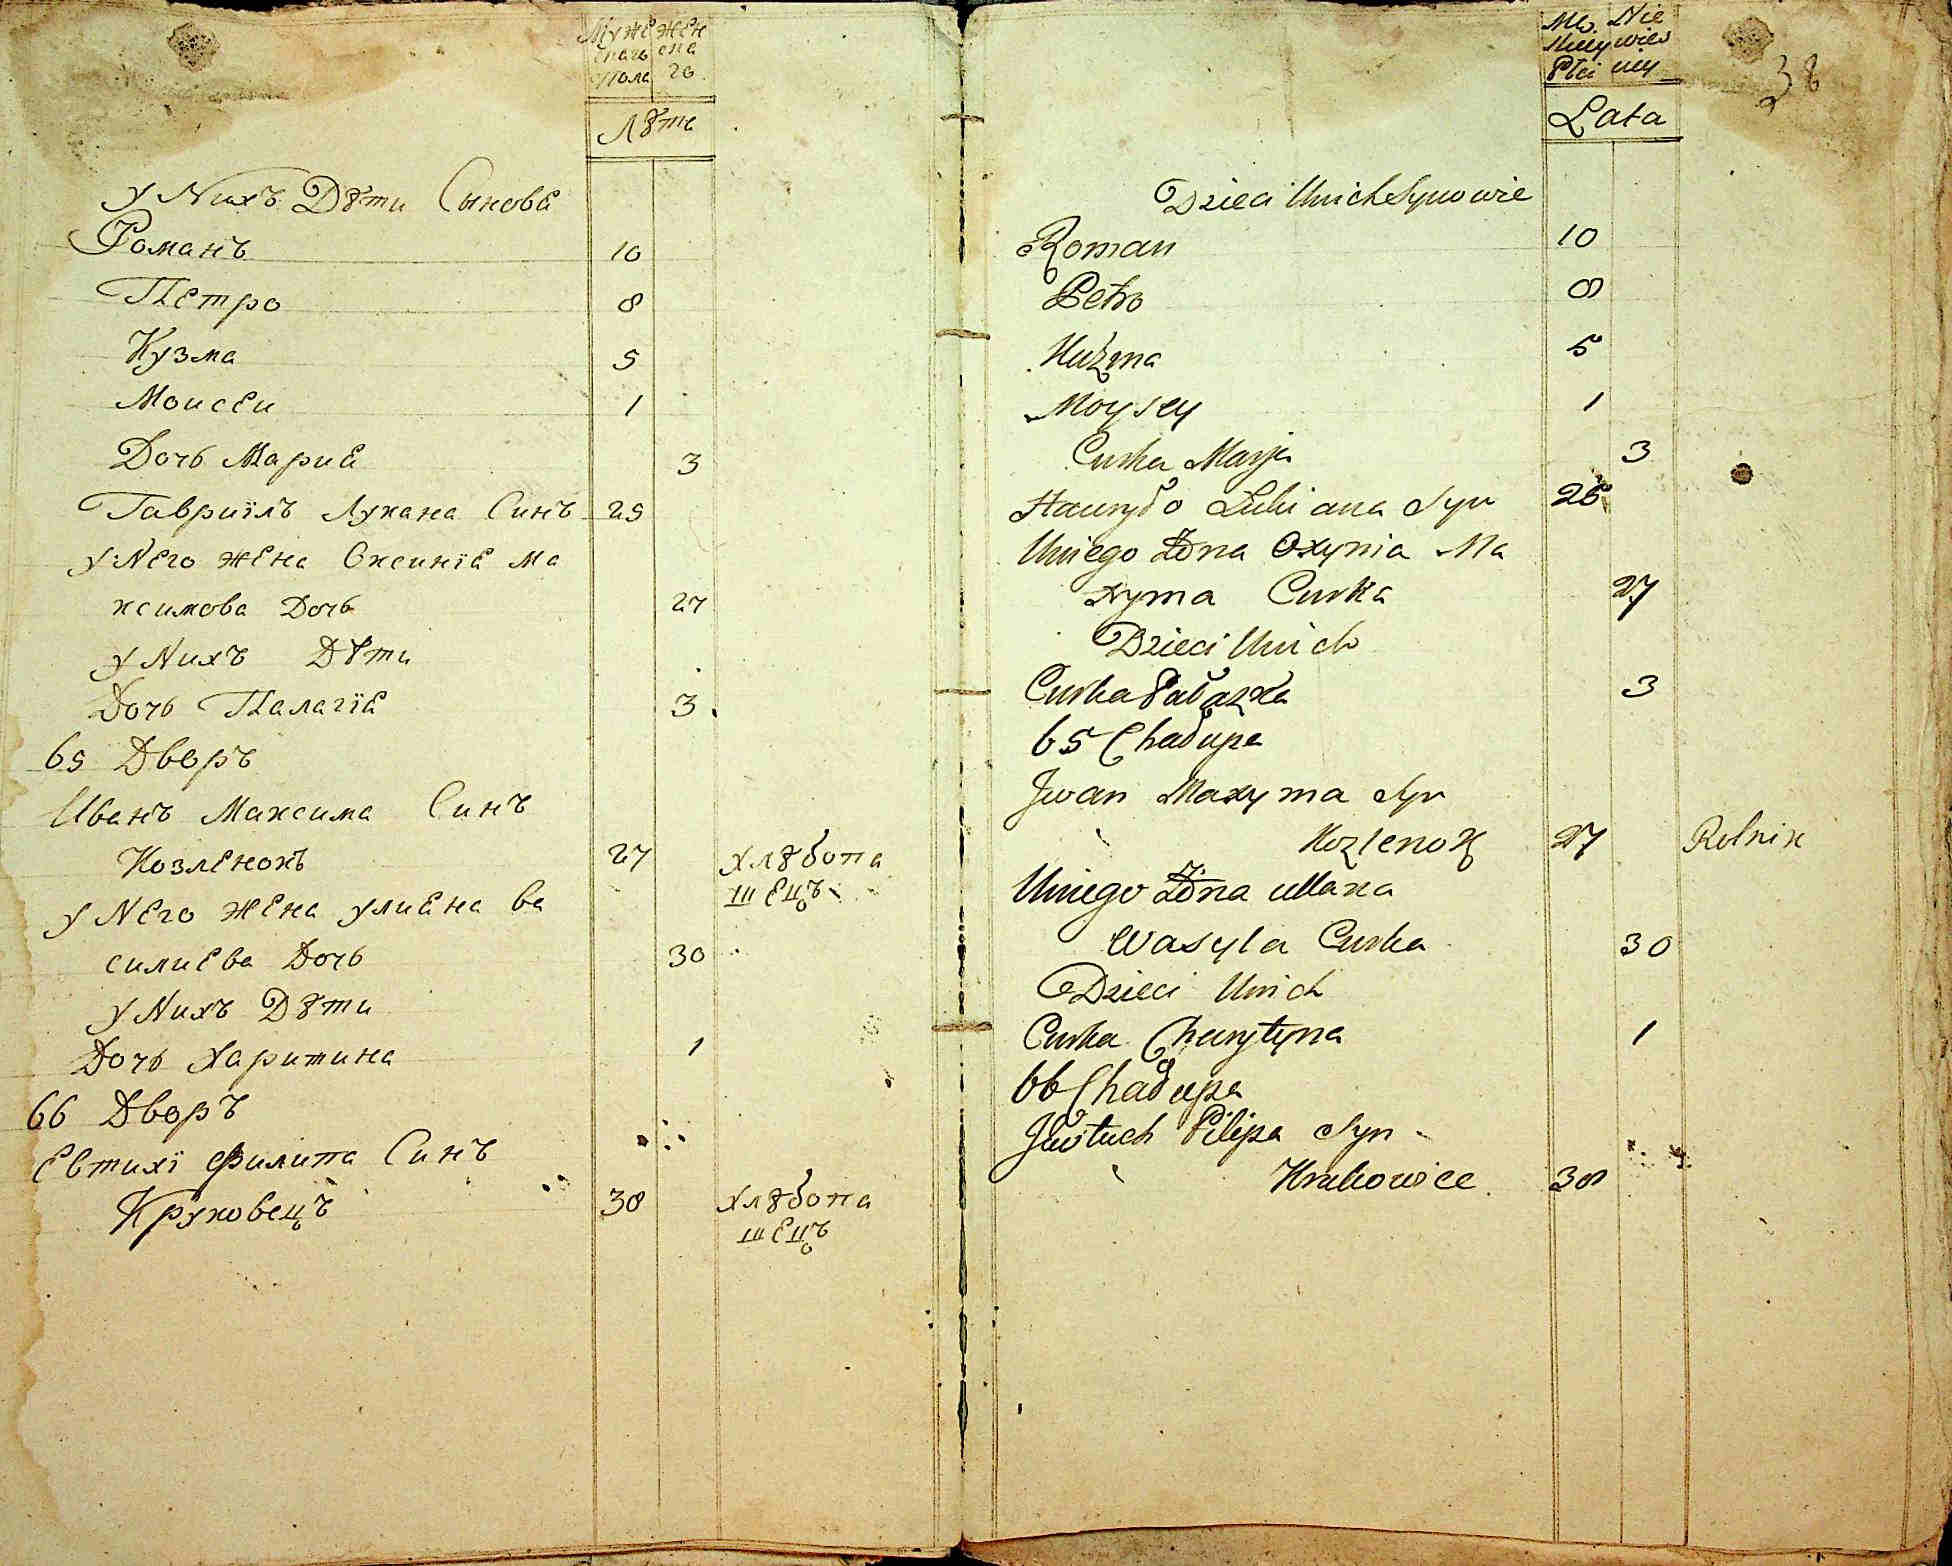 Муже Жен
скаго ска
пола го
Лѣтѣ
у Нихъ Дѣти Сыновѣ
Романъ 10
Петро 8
Кузма 5
Моисеи 1
Дочь Мариѣ 3
Гавриілъ Лукана Синъ 25
у Него жена Оксиніѣ Ма
ксимова Дочь 27
у Нихъ Дѣти
Дочь Палагіѣ 3
65 Дворъ
Иванъ Максима Синъ
Козленокъ 27 хлѣбопа
шецъ
у Него жена улиѣна ва
силиева Дочь 30
у Нихъ Дѣти
Дочь Харитина 1
66 Дворъ
Евтихі Филипа Синъ
Круковецъ 38 хлѣбопа
шецъ
38
Mę Nie
skiey wies
Płci ciey
Lata
Dzieci Unich Synowie
Roman 10
Petro 8
Kuźma 5
Moysey 1
Curka Marja 3
Hawryło Lukiana Syn 25
Uniego Żona Oxynia Ma
xyma Curka 27
Dzieci Unich
Curka Pałazka 3
65 Chałupa
Jwan Maxyma Syn
Kozlenok 27 Rolnik
Uniego Żona ullana
Wasyla Curka 30
Dzieci Unich
Curka Charytyna 1
66 Chałupa
Jewtuch Pilipa Syn
Krukowiec 38